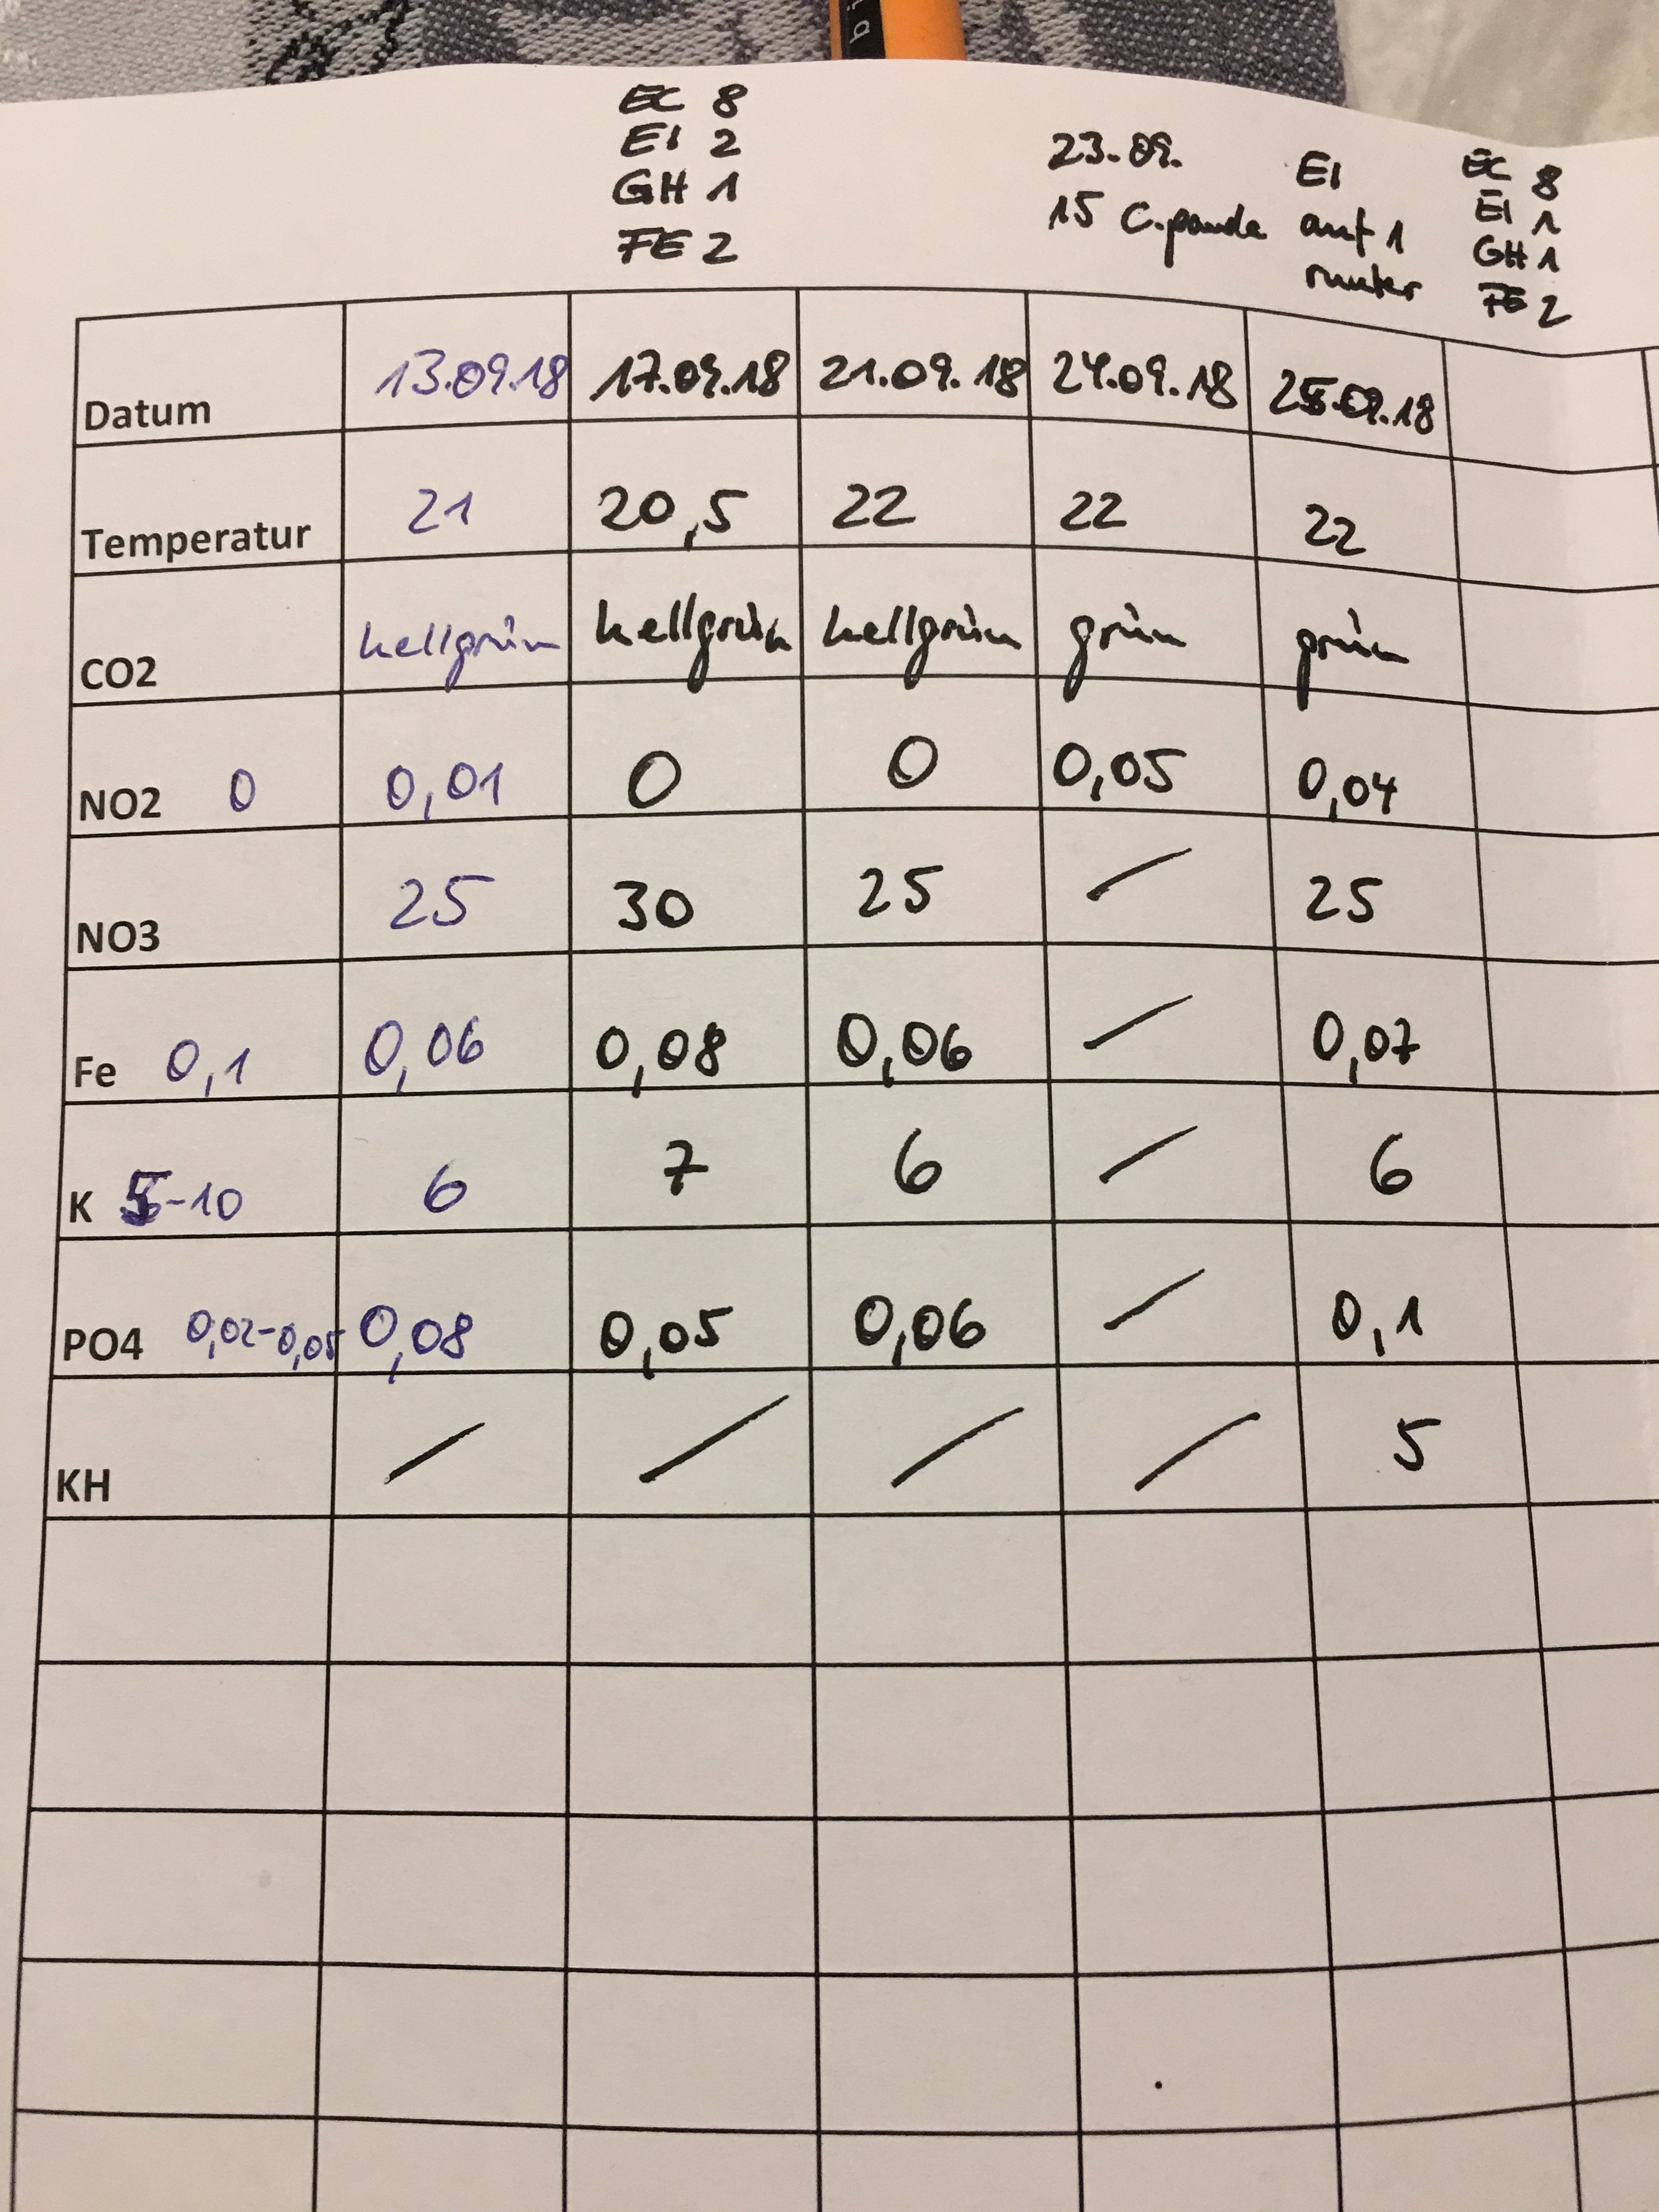 bi
EC 8
EI 2
GH 1
FE 2
23.09.
15 C. panda
EI
auf 1
runter
EC 8
EI 1
GH 1
FE 2
Datum 13.09.18 17.09.18 21.09.18 24.09.18 25.09.18
Temperatur 21 20,5 22 22 22
CO2 hellgrün hellgrün hellgrün grün grün
NO2 0 0,01 0 0 0,05 0,04
NO3 25 30 25 / 25
Fe 0,1 0,06 0,08 0,06 / 0,07
K 5-10 6 7 6 / 6
PO4 0,02-0,05 0,08 0,05 0,06 / 0,1
KH / / / / 5